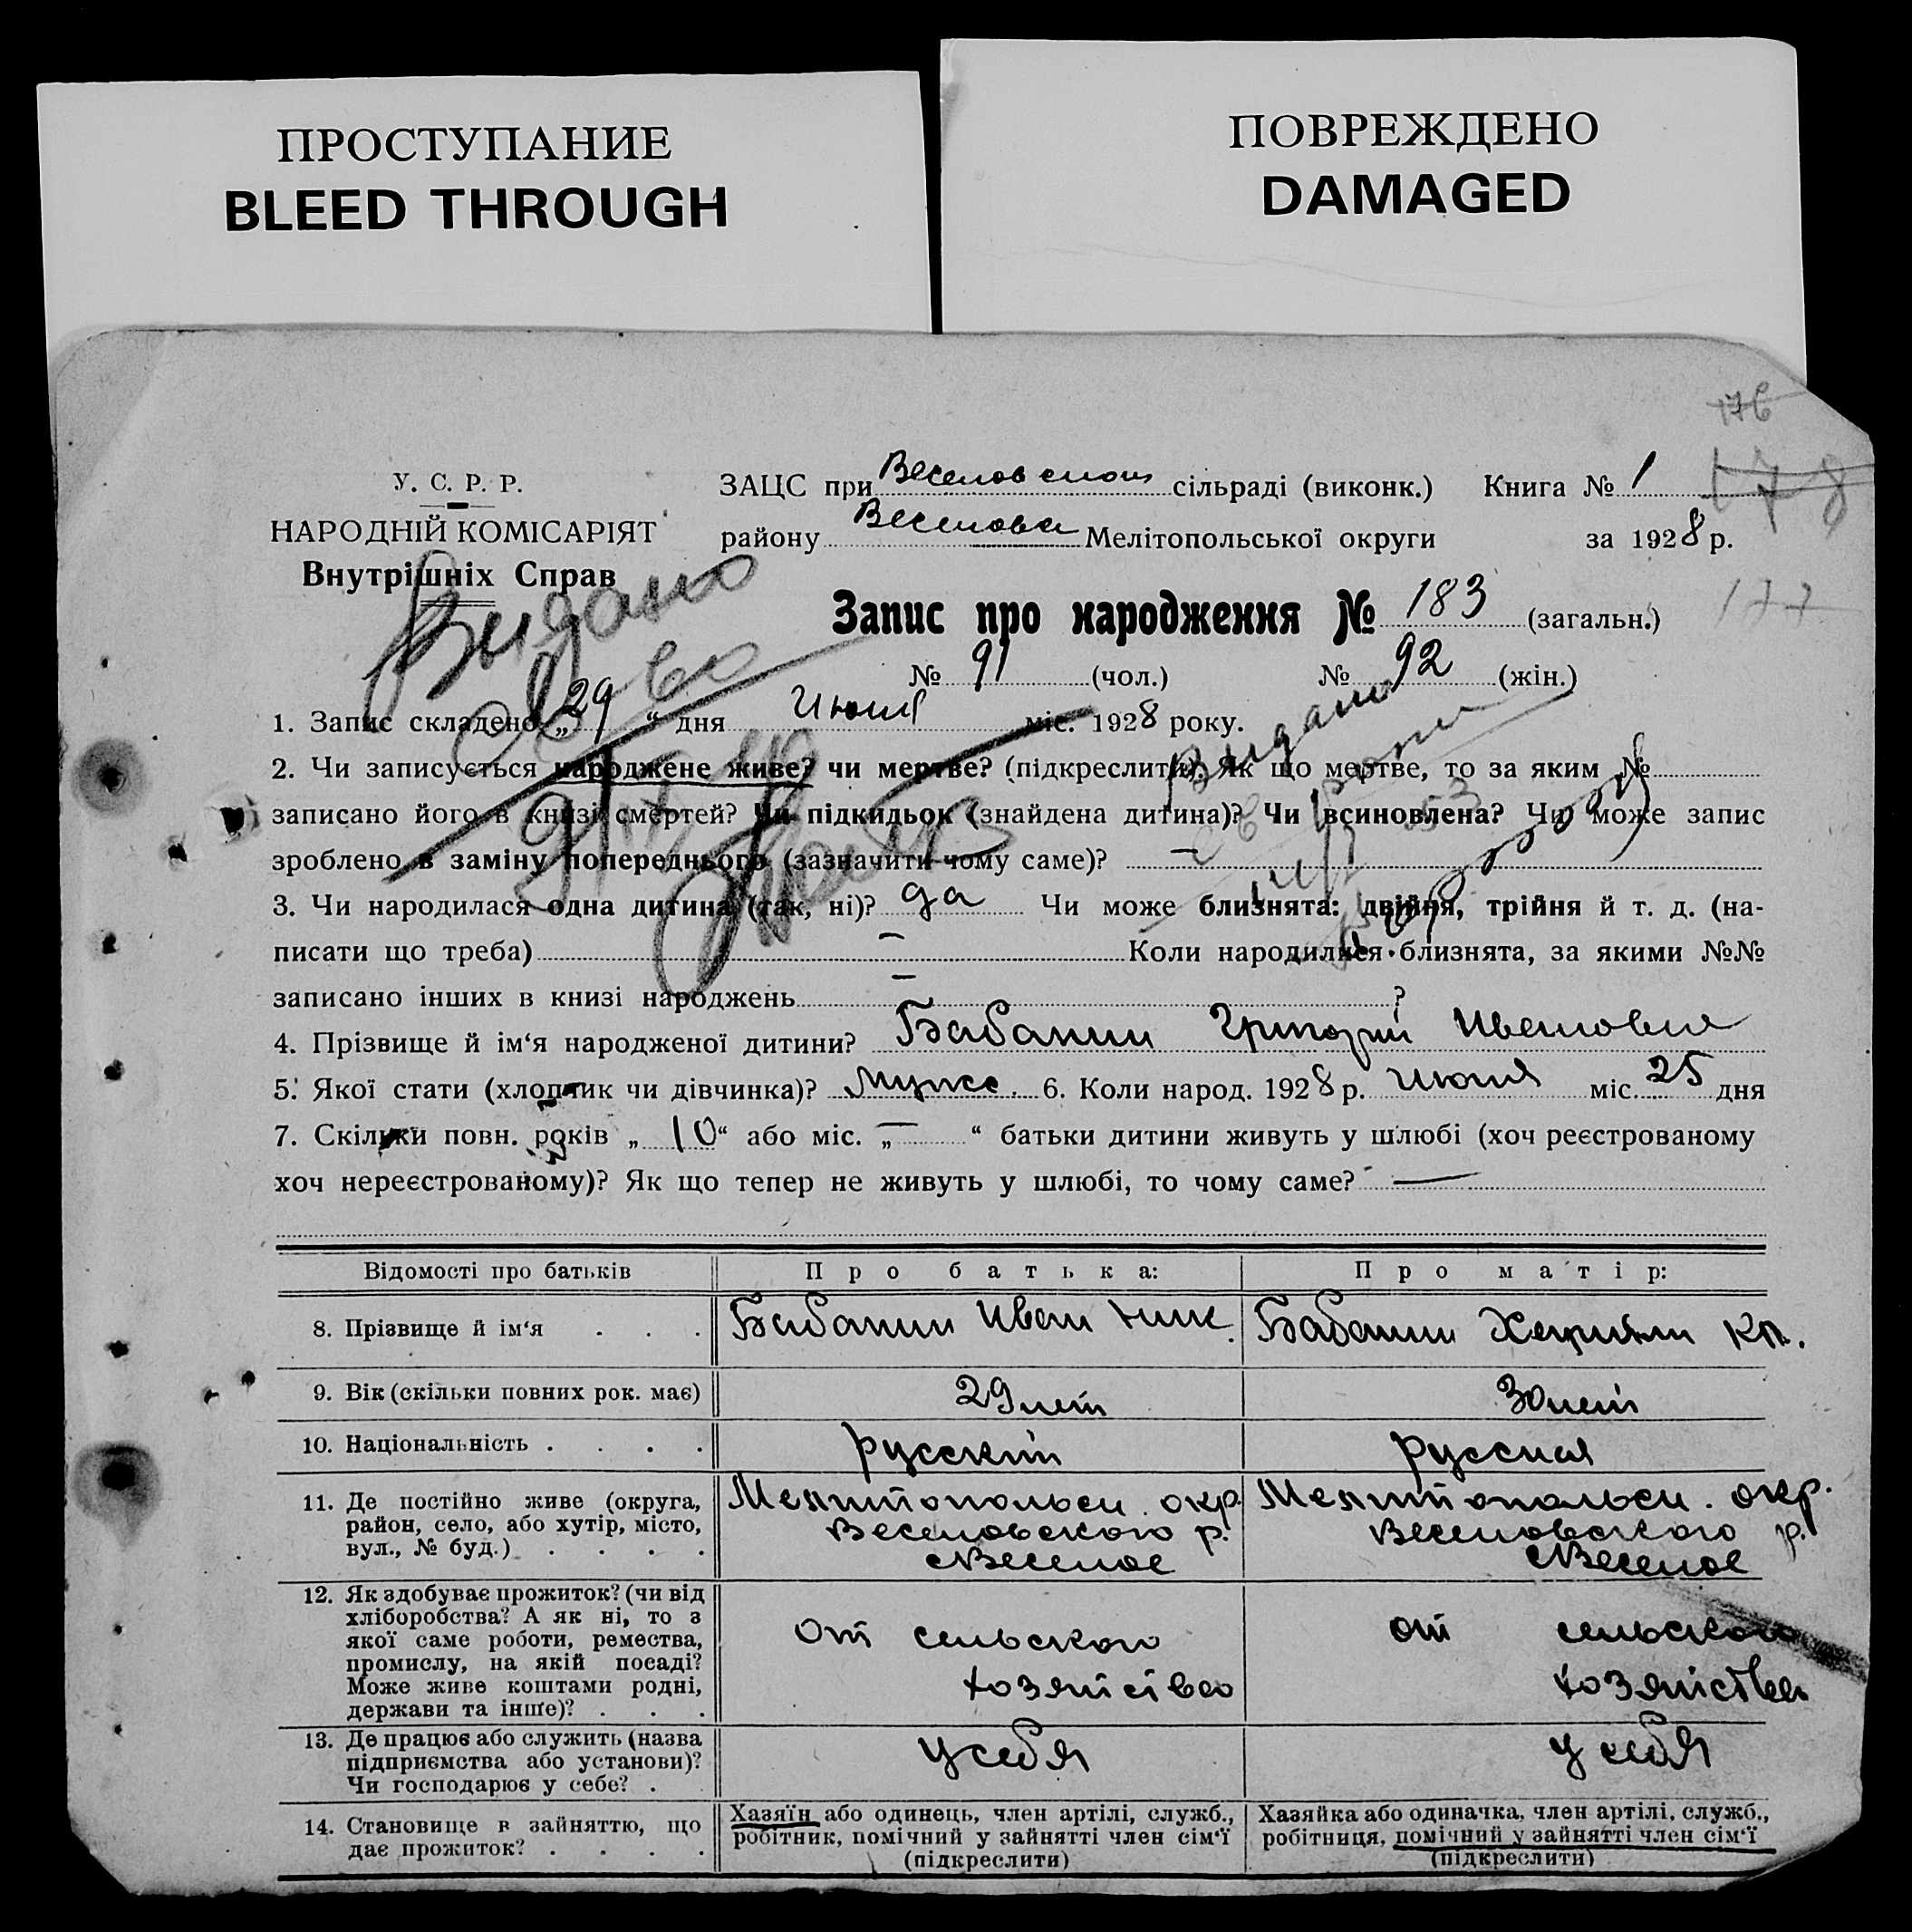 ПРОСТУПАНИЕ
BLEED THROUGH
ПОВРЕЖДЕНО
DAMAGED
176
178
177
У. С. Р. Р.
НАРОДНІЙ КОМІСАРІЯТ
Внутрішніх Справ
ЗАЦС при Веселовском сільраді (виконк.) Книга № 1
району Веселова Мелітопольської округи за 1928 р.
Запис про народження № 183 (загальн.)
№ 91 (чол.) № 92 (жін.)
Выдано
Выдано
1. Запис складено „29“ дня Июня міс. 1928 року.
2. Чи записується народжене живе? чи мертве? (підкреслити). Як що мертве, то за яким №
записано його в книзі смертей? Чи підкидьок (знайдена дитина)? Чи всиновлена? Чи може запис
зроблено в заміну попереднього (зазначити чому саме)? —
3. Чи народилася одна дитина (так, ні)? да Чи може близнята: двійня, трійня й т. д. (на-
писати що треба) — Коли народилися близнята, за якими №№
записано інших в книзі народжень — ?
4. Прізвище й ім‘я народженої дитини? Бабанин Григорий Иванович
5. Якої стати (хлопчик чи дівчинка)? Мужс. 6. Коли народ. 1928 р. Июня міс. 25 дня
7. Скільки повн. років „10“ або міс. „—“ батьки дитини живуть у шлюбі (хоч реєстрованому
хоч нереєстрованому)? Як що тепер не живуть у шлюбі, то чому саме? —
Відомості про батьків Про батька: Про матір:
8. Прізвище й ім‘я . . . Бабанин Иван Ник. Бабанин
9. Вік (скільки повних рок. має) 29 лет 30 лет
10. Національність . . . . русский русская
11. Де постійно живе (округа,
район, село, або хутір, місто,
вул., № буд.) . . . .
Мелитопольск. окр.
Веселовского р.
с Веселое
Мелитопольск. окр.
Веселовского р.
с Веселое
12. Як здобуває прожиток? (чи від
хліборобства? А як ні, то з
якої саме роботи, ремества,
промислу, на якій посаді?
Може живе коштами родні,
держави та інше)? . . .
От сельского
хозяйства
от сельского
хозяйства
13. Де працює або служить (назва
підприємства або установи)?
Чи господарює у себе? .
у себя
у себя
14. Становище в зайняттю, що
дає прожиток? . . . .
Хазяїн або одинець, член артілі, служб.,
робітник, помічний у зайнятті член сім‘ї
(підкреслити)
Хазяйка або одиначка, член артілі, служб.,
робітниця, помічний у зайнятті член сім‘ї
(підкреслити)